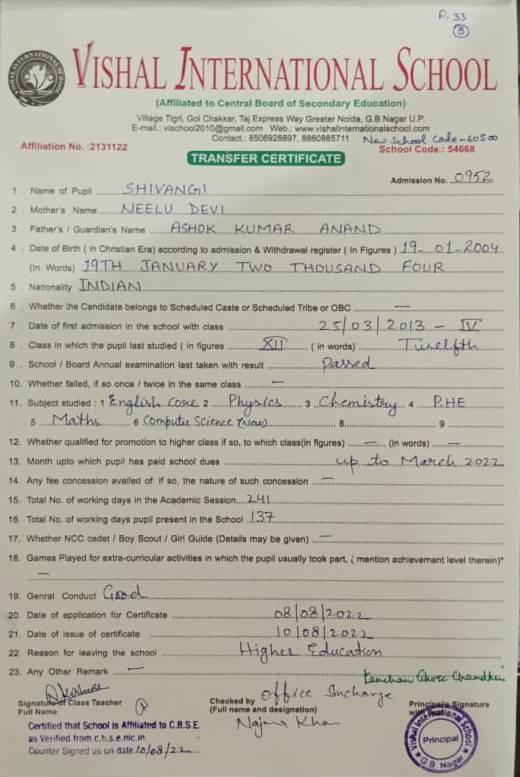 F. 33
3
VISHAL INTERNATIONAL SCHOOL
(Affiliated to Central Board of Secondary Education)
Village Tigri, Gol Chakkar, Taj Express Way Greater Noida, G.B Nagar U.P.
E-mail.: vischool2010@gmail.com Web.: www.vishalinternationalschool.com
Contact.: 8506928897, 8860885711 New School Code-60500
Affiliation No. :2131122 School Code.: 54668
TRANSFER CERTIFICATE
Admission No. 0952
1. Name of Pupil SHIVANGI
2. Mother's Name NEELU DEVI
3. Father's / Guardian's Name ASHOK KUMAR ANAND
4. Date of Birth ( in Christian Era) according to admission & Withdrawal register ( In Figures ) 19-01-2004
(In Words) 19TH JANUARY TWO THOUSAND FOUR
5. Nationality INDIAN
6. Whether the Candidate belongs to Scheduled Caste or Scheduled Tribe or OBC —
7. Date of first admission in the school with class 25/03/2013 - IV
8. Class in which the pupil last studied ( in figures XII ( in words) Twelfth
9. School / Board Annual examination last taken with result Passed
10. Whether failed, if so once / twice in the same class —
11. Subject studied : 1 English Core 2 Physics 3 Chemistry 4 P.HE
5 Maths 6 Computer Science (New) 8 9
12. Whether qualified for promotion to higher class if so, to which class(in figures) — (in words) —
13. Month upto which pupil has paid school dues up to March 2022
14. Any fee concession availed of: if so, the nature of such concession —
15. Total No. of working days in the Academic Session 241
16. Total No. of working days pupil present in the School 137
17. Whether NCC cadet / Boy Scout / Girl Guide (Details may be given) —
18. Games Played for extra-curricular activities in which the pupil usually took part, ( mention achievement level therein)*
—
19. Genral Conduct Good
20. Date of application for Certificate 08/08/2022
21. Date of issue of certificate 10/08/2022
22. Reason for leaving the school Higher Education
23. Any Other Remark —
Signature of Class Teacher
Full Name
Checked by Office Incharge
(Full name and designation) Najma Khan
Principal's Signature
Certified that School is Affiliated to C.B.S.E.
as Verified from c.b.s.e.nic.in
Counter Signed us on date 10/08/22
Vishal International School
Principal
G.B. Nagar